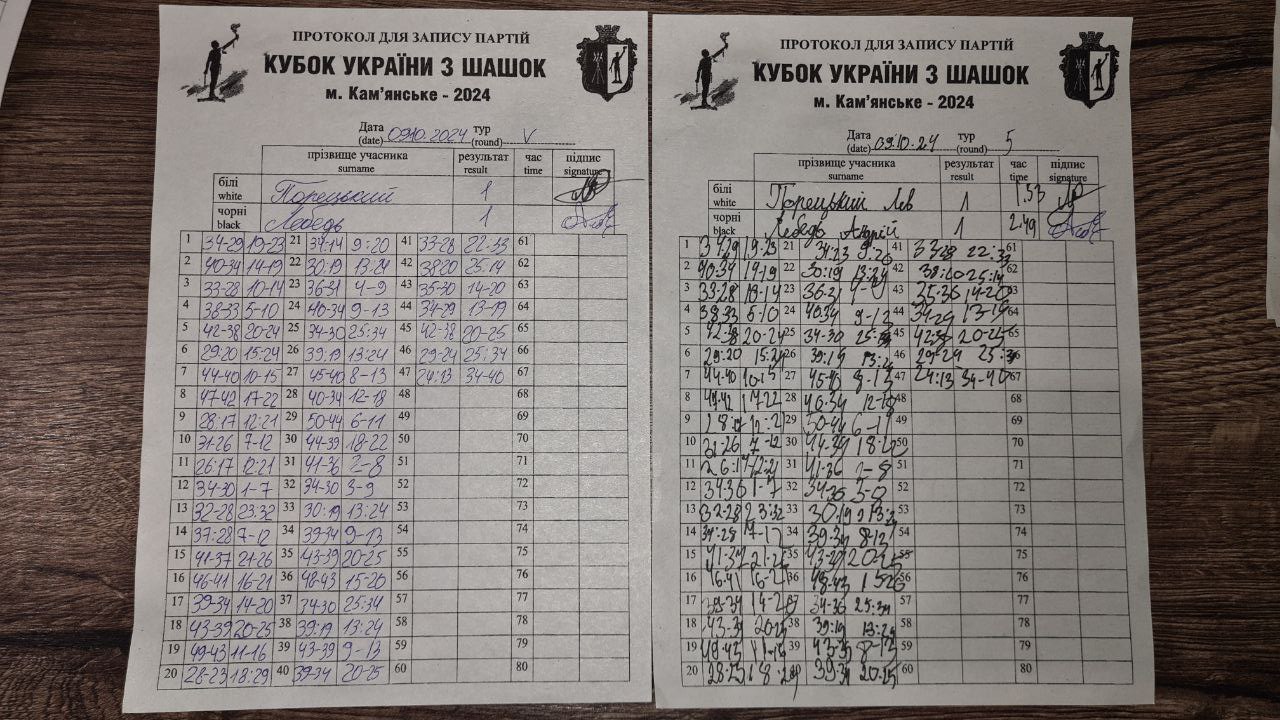 ПРОТОКОЛ ДЛЯ ЗАПИСУ ПАРТІЙ
КУБОК УКРАЇНИ З ШАШОК
м. Кам'янське - 2024
Дата (date) 09.10.2024 тур (round) V
прізвище учасника surname результат result час time підпис signature
білі white Порецький 1
чорні black Лебедь 1
1 34-29 19-23 21 37-14 9:20 41 33-28 22:33 61
2 40-34 14-19 22 30:19 13:24 42 38:20 25:14 62
3 33-28 10-14 23 36-31 4-9 43 35-30 14-20 63
4 38-33 5-10 24 40-34 9-13 44 34-29 13-19 64
5 42-38 20-24 25 34-30 25:34 45 42-38 20-25 65
6 29:20 15:24 26 39:19 13:24 46 29-24 25:34 66
7 44-40 10-15 27 45-40 8-13 47 24:13 34-40 67
8 47-42 17-22 28 40-34 12-18 48 68
9 28:17 12:21 29 50-44 6-11 49 69
10 31-26 7-12 30 44-39 18-22 50 70
11 26:17 12:21 31 41-36 2-8 51 71
12 34-30 1-7 32 34-30 3-9 52 72
13 32-28 23:32 33 30:19 13:24 53 73
14 37:28 7-12 34 39-34 9-13 54 74
15 41-37 21-26 35 43-39 20-25 55 75
16 46-41 16-21 36 48-43 15-20 56 76
17 39-34 14-20 37 34-30 25:34 57 77
18 43-39 20-25 38 39:19 13:24 58 78
19 49-43 11-16 39 43-39 9-13 59 79
20 28-23 18:29 40 39-34 20-25 60 80
ПРОТОКОЛ ДЛЯ ЗАПИСУ ПАРТІЙ
КУБОК УКРАЇНИ З ШАШОК
м. Кам'янське - 2024
Дата (date) 09.10.24 тур (round) 5
прізвище учасника surname результат result час time підпис signature
білі white Порецький Лев 1 1.53
чорні black Лебедь Андрій 1 2.49
1 34-29 19-23 21 9:20 41 33-28 22:33 61
2 40-34 14-19 22 30:19 13:24 42 25:14 62
3 33-28 10-14 23 36-31 43 14-20 63
4 38-33 5-10 24 40-34 44 34-29 13-19 64
5 20-24 25 34-30 45 20-25 65
6 29:20 15:24 26 39:19 13:24 46 29-24 66
7 44-40 10-15 27 47 24:13 34-40 67
8 17-22 28 48 68
9 28:17 12:21 29 50-44 6-11 49 69
10 31-26 7-12 30 44-39 18-22 50 70
11 26:17 12:21 31 41-36 2-8 51 71
12 1-7 32 52 72
13 32-28 23:32 33 30:19 13:24 53 73
14 34 39-34 54 74
15 41-37 35 20-25 55 75
16 46-41 16-21 36 48-43 56 76
17 39-34 14-20 37 25:34 57 77
18 43-39 20-25 38 39:19 13:24 58 78
19 49-43 39 43-39 59 79
20 28-23 18:29 40 39-34 20-25 60 80